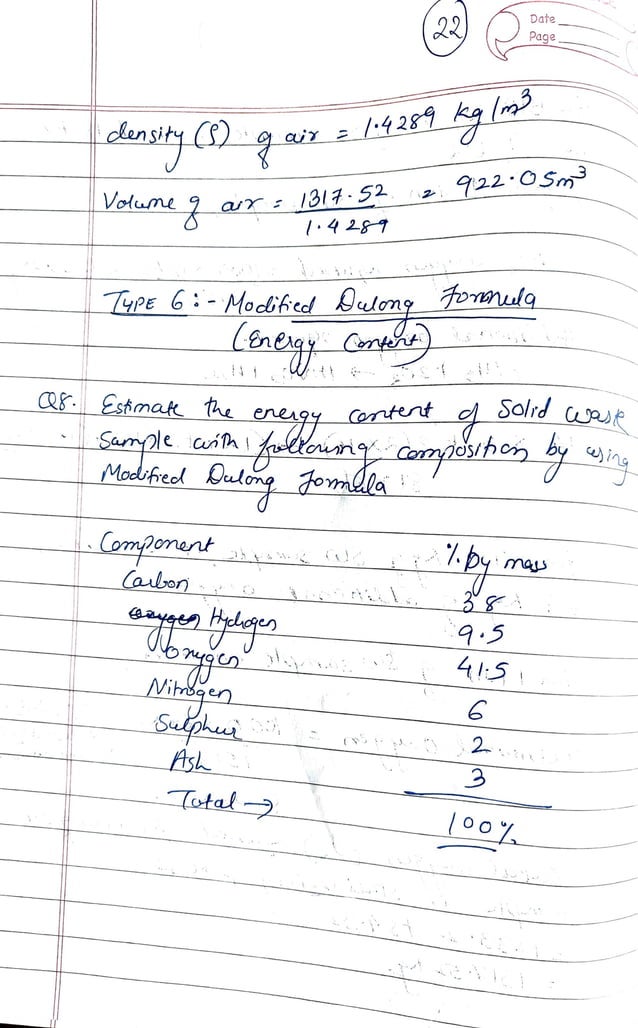 22
Date
Page
density (ρ) of air = 1.4289 kg/m³
Volume of air = 1317.52 = 922.05m³
1.4289
TYPE 6 :- Modified Dulong Formula
(Energy Content)
Q8. Estimate the energy content of Solid waste
Sample with following composition by using
Modified Dulong Formula
Component %.by mass
Carbon 38
Hydrogen 9.5
Oxygen 41.5
Nitrogen 6
Sulphur 2
Ash 3
Total → 100%